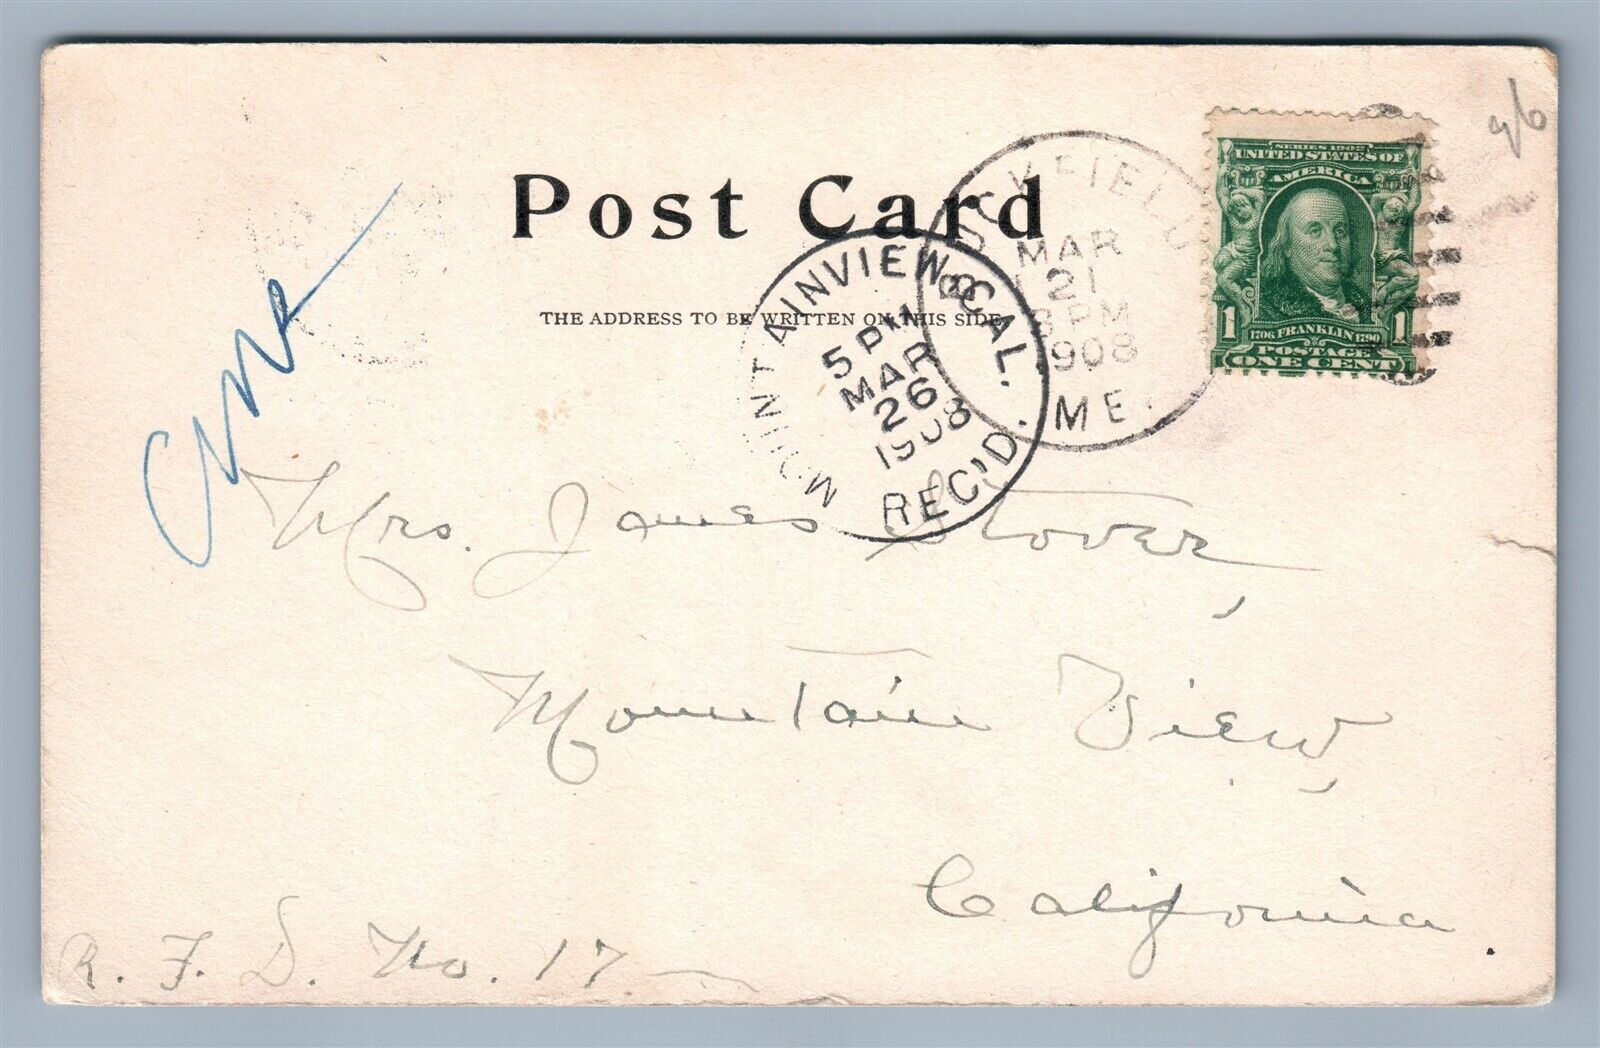 Post Card
THE ADDRESS TO BE WRITTEN ON THIS SIDE
MAR
21
8 PM
1908
ME.
MOUNTAINVIEW, CAL.
5 PM
MAR
26
1908
REC'D.
SERIES 1902
UNITED STATES OF
AMERICA
1706 FRANKLIN 1790
1 POSTAGE 1
ONE CENT
96
Mrs. James Stover,
Mountain View,
California.
R. F. D. No. 17.